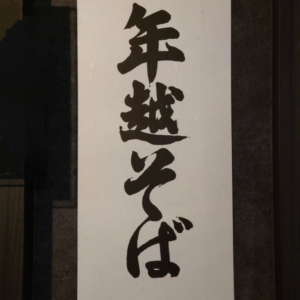 年越そば